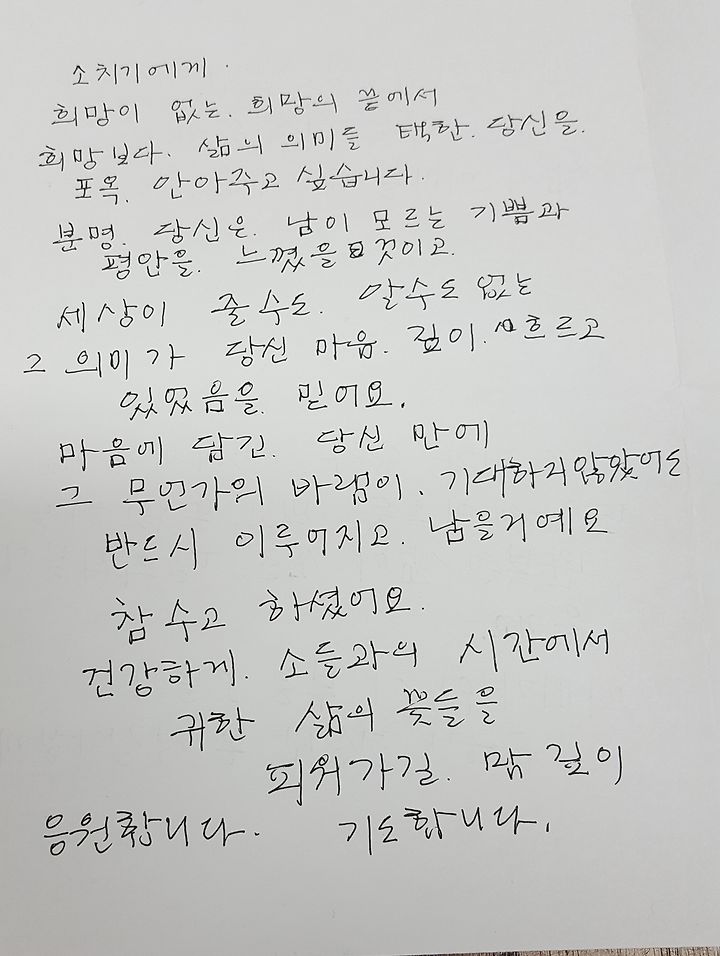 소치기에게.
희망이 없는. 희망의 끝에서
희망보다. 삶의 의미를 택한. 당신을.
포옥. 안아주고 싶습니다.
분명. 당신은. 남이 모르는 기쁨과
평안을. 느꼈을 것이고.
세상이 줄수도. 알수도 없는
그 의미가 당신 마음. 깊이. 흐르고
있었음을. 믿어요.
마음에 담긴. 당신 만에
그 무언가의 바램이. 기대하지않았어도
반드시 이루어지고. 남을거예요
참 수고 하셨어요.
건강하게. 소들과의 시간에서
귀한 삶의 꽃들을
피워가길. 맘 깊이
응원합니다. 기도합니다.